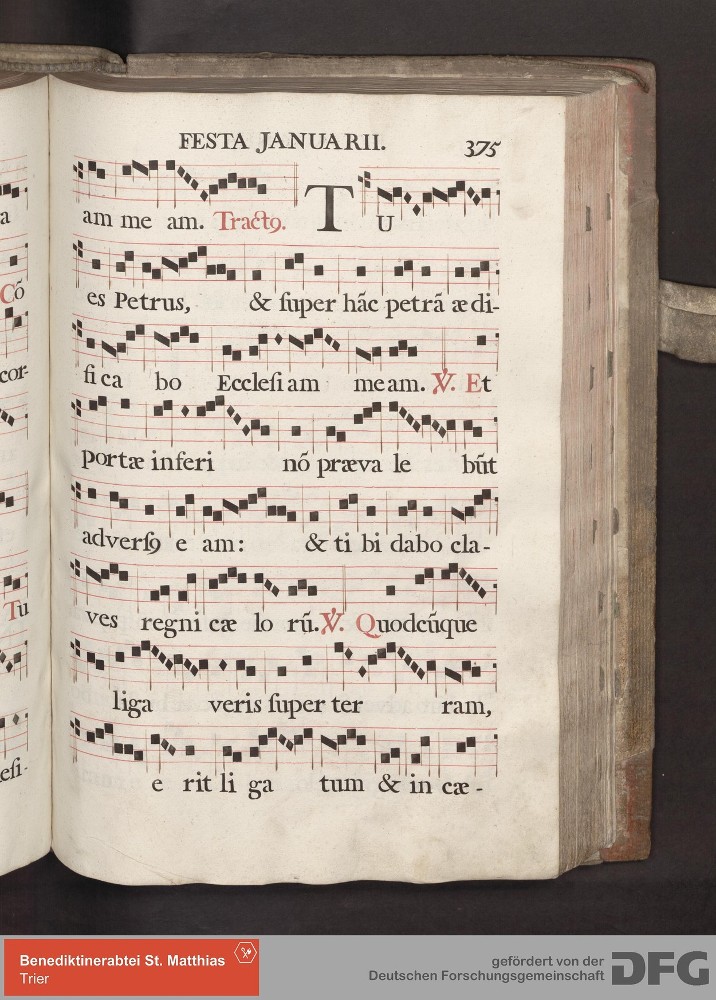 a
Cõ
cor-
Tu
esi-
FESTA JANUARII. 375
am me am. Tractꝰ. TU
es Petrus, & ſuper hãc petrã ædi-
fica bo Eccleſiam meam. ℣. Et
portæ inferi nõ præva le bũt
adverſꝰ e am: & ti bi dabo cla-
ves regni cæ lo rũ. ℣. Quodcũque
liga veris ſuper ter ram,
e rit li ga tum & in cæ-
Benediktinerabtei St. Matthias
Trier
gefördert von der
Deutschen Forschungsgemeinschaft DFG